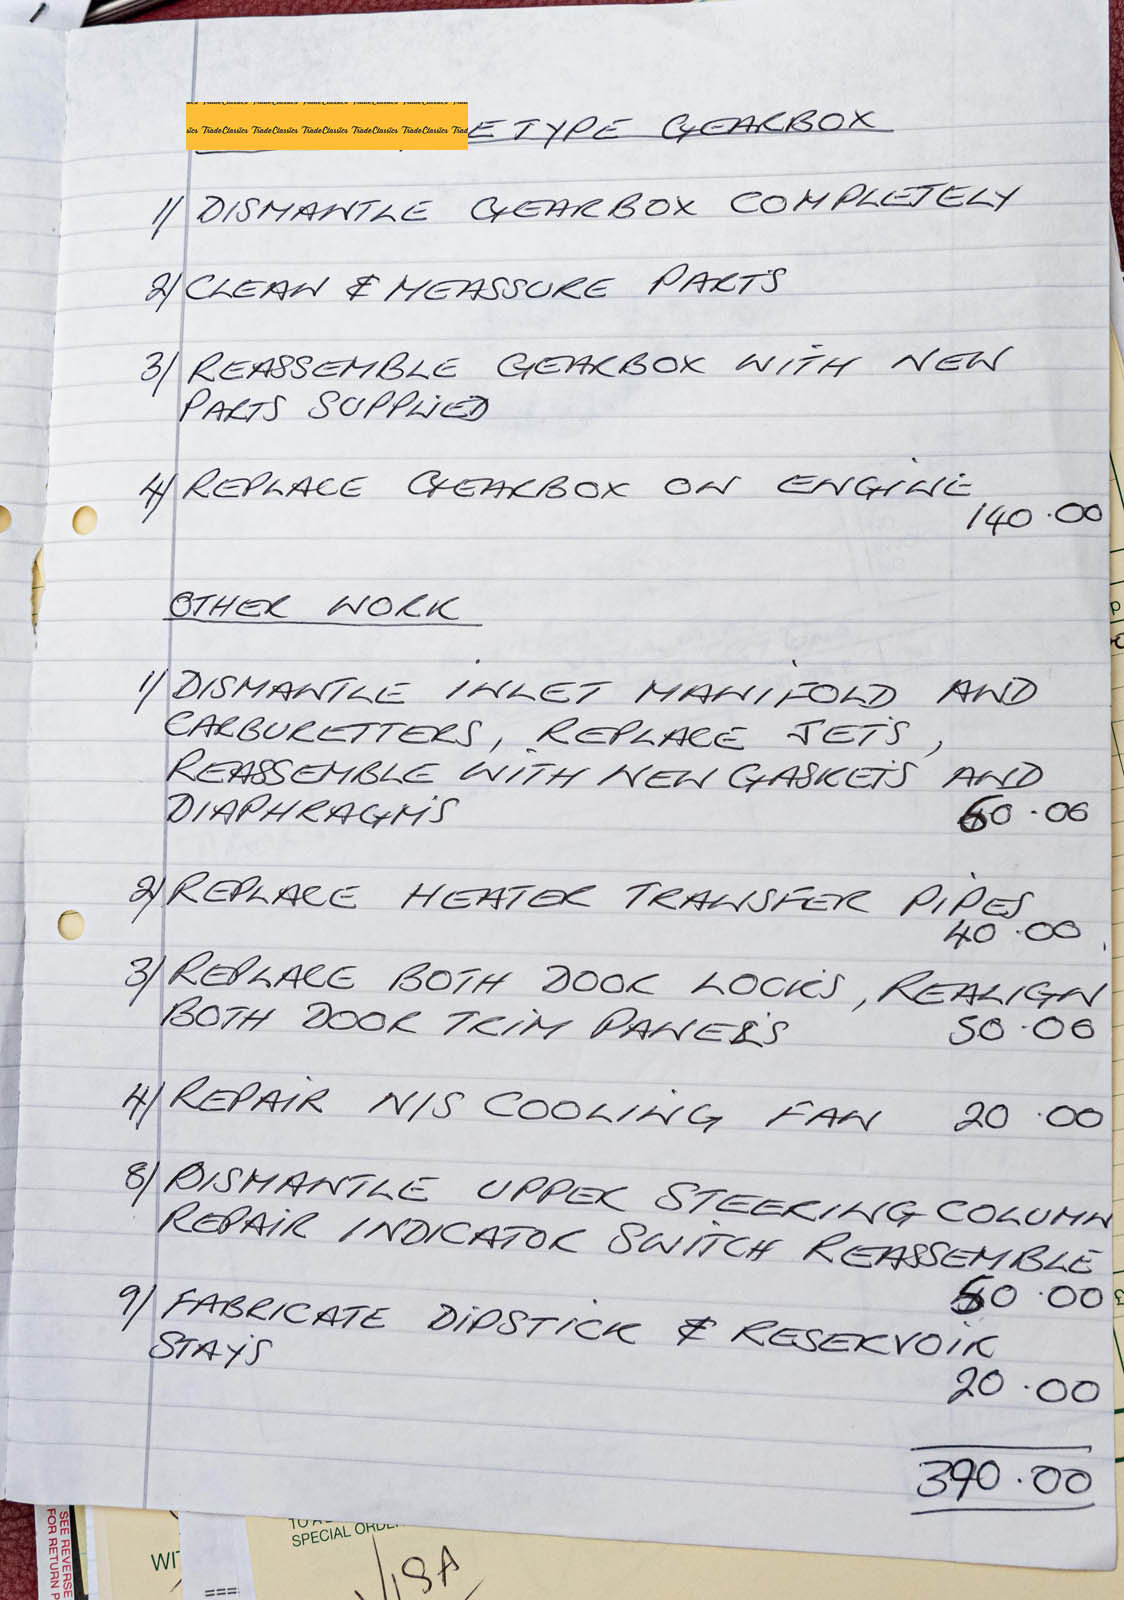 TradeClassics TradeClassics TradeClassics TradeClassics TradeClassics
E TYPE GEARBOX
1/ DISMANTLE GEARBOX COMPLETELY
2/ CLEAN & MEASSURE PART'S
3/ REASSEMBLE GEARBOX WITH NEW
PARTS SUPPLIED
4/ REPLACE GEARBOX ON ENGINE
140.00
OTHER WORK
1/ DISMANTLE INLET MANIFOLD AND
CARBURETTERS, REPLACE JET'S,
REASSEMBLE WITH NEW GASKET'S AND
DIAPHRAGM'S 60.00
2/ REPLACE HEATER TRANSFER PIPES
40.00
3/ REPLACE BOTH DOOR LOCK'S, REALIGN
BOTH DOOR TRIM PANEL'S 50.00
4/ REPAIR N/S COOLING FAN 20.00
8/ DISMANTLE UPPER STEERING COLUMN
REPAIR INDICATOR SWITCH REASSEMBLE
60.00
9/ FABRICATE DIPSTICK & RESERVOIR
STAY'S
20.00
390.00
SEE REVERSE
FOR RETURN P
WI
SPECIAL ORDE
VISA